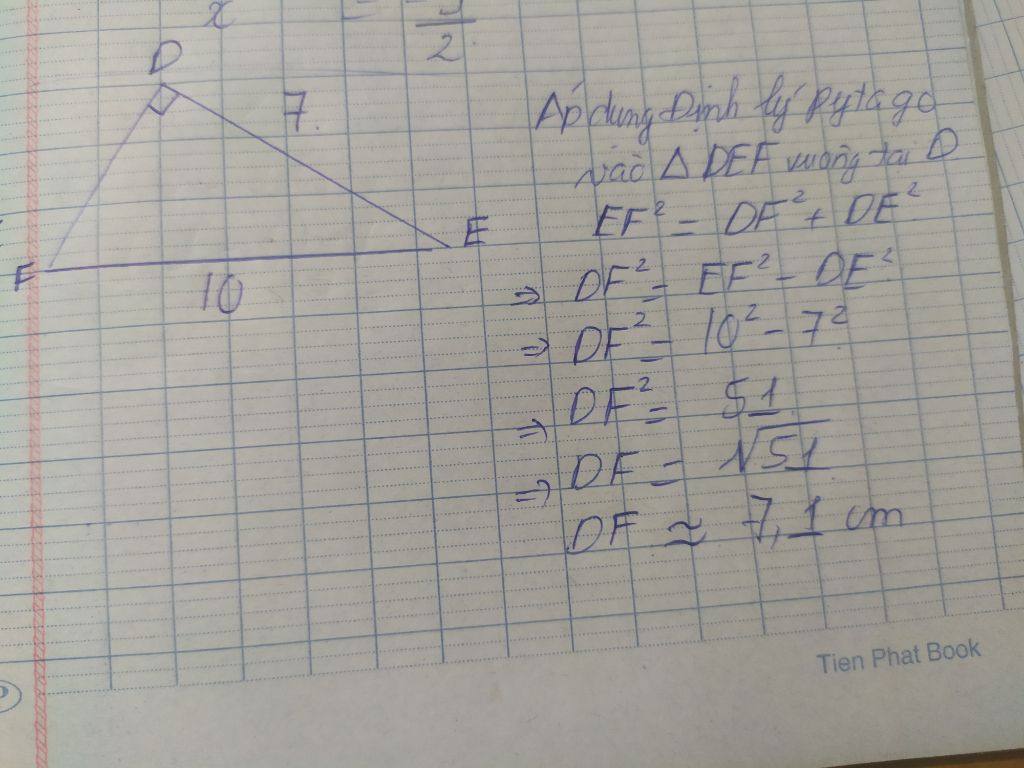 x = -
2
D
7.
F
E
10
Áp dụng Định lý Pytago
vào Δ DEF vuông tại D
EF² = DF² + DE²
⇒ DF² = EF² - DE²
⇒ DF² = 10² - 7²
⇒ DF² = 51
⇒ DF = √51
DF ≈ 7,1 cm
Tien Phat Book